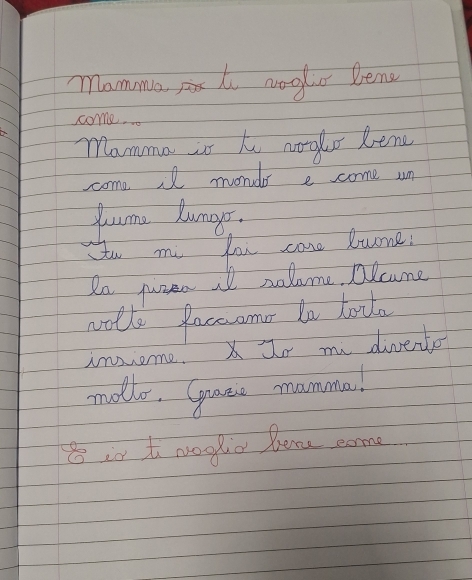 Mamma io ti voglio bene
come...
Mamma io ti voglio bene
come il mondo e come un
fiume lungo.
Tu mi fai cose buone:
la pizza il salame. Alcune
volte facciamo la torta
insieme. Io mi diverto
molto. Grazie mamma!
E io ti voglio bene come...